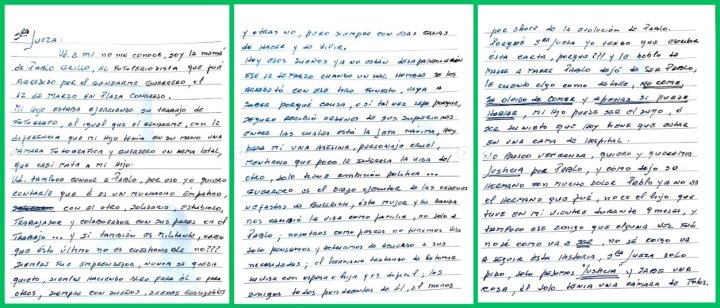 Sra Jueza:
Ud. a mi no me conoce, soy la mamá
de Pablo Grillo, el fotoperiodista que fue
agredido por el gendarme Guerrero, el
12 de Marzo en Plaza Congreso.
Mi hijo estaba ejerciendo su trabajo de
fotógrafo, al igual que el gendarme, con la
diferencia que mi hijo tenía en su mano una
cámara fotográfica y Guerrero un arma letal,
que casi mata a mi hijo.
Ud. tampoco conoce a Pablo, por eso yo quiero
contarle que él es un muchacho empático,
con el otro, solidario, estudioso,
trabajador y colaborador con sus pares en el
trabajo... y si también es militante, creo
que ésto último no es cuestionable no???
Siempre fue emprendedor, nunca se queda
quieto, siempre haciendo algo para él o para
otros, siempre con sueños, sueños realizables
y otras no, pero siempre con esas ganas
de hacer y de vivir.
Hoy esos sueños ya no están desaparecieron
ese 12 de Marzo cuando un mal hombre se los
arrebató con ese tiro funesto, vaya a
saber porqué causa, o si tal vez sepa porque,
seguro recibió ordenes de sus superiores
entre las cuales está la jefa máxima, hoy
para mi una asesina, personaje cruel,
mentiroso que poco le interesa la vida del
otro, solo tiene ambición política...
Guerrero es el brazo ejecutor de las ordenes
nefastas de Bullrich, ésta mujer y su banda
nos cambió la vida como familia, no solo a
Pablo, nosotros como padres no tenemos vida
solo pensamos y actuamos de acuerdo a sus
necesidades; el hermano tratando de sostener
su vida con esposa e hija y es dificil; los
amigos todos pendientes de él, al menos
por ahora de la evolución de Pablo.
Porqué Sra Jueza yo tengo que escribir
ésta carta, porqué??? y le hablo de
madre a madre Pablo dejó de ser Pablo,
le cuento algo como detalle, no come,
se olvidó de comer y apenas si puede
hablar, mi hijo puede ser el suyo, o
ser su nieto que hoy tiene que estar
en una cama de hospital.
No busco venganza, quiero y queremos
Justicia por Pablo, y como dijo su
hermano con mucho dolor Pablo ya no es
el hermano que fué, no es el hijo que
tuve en mi vientre durante 9 meses, y
tampoco ese amigo que alguna vez fué
no sé como va a ser, no sé como va
a seguir ésta historia, Sra Jueza solo
pido, solo pedimos Justicia y sabe una
cosa, él solo tenía una cámara de fotos.